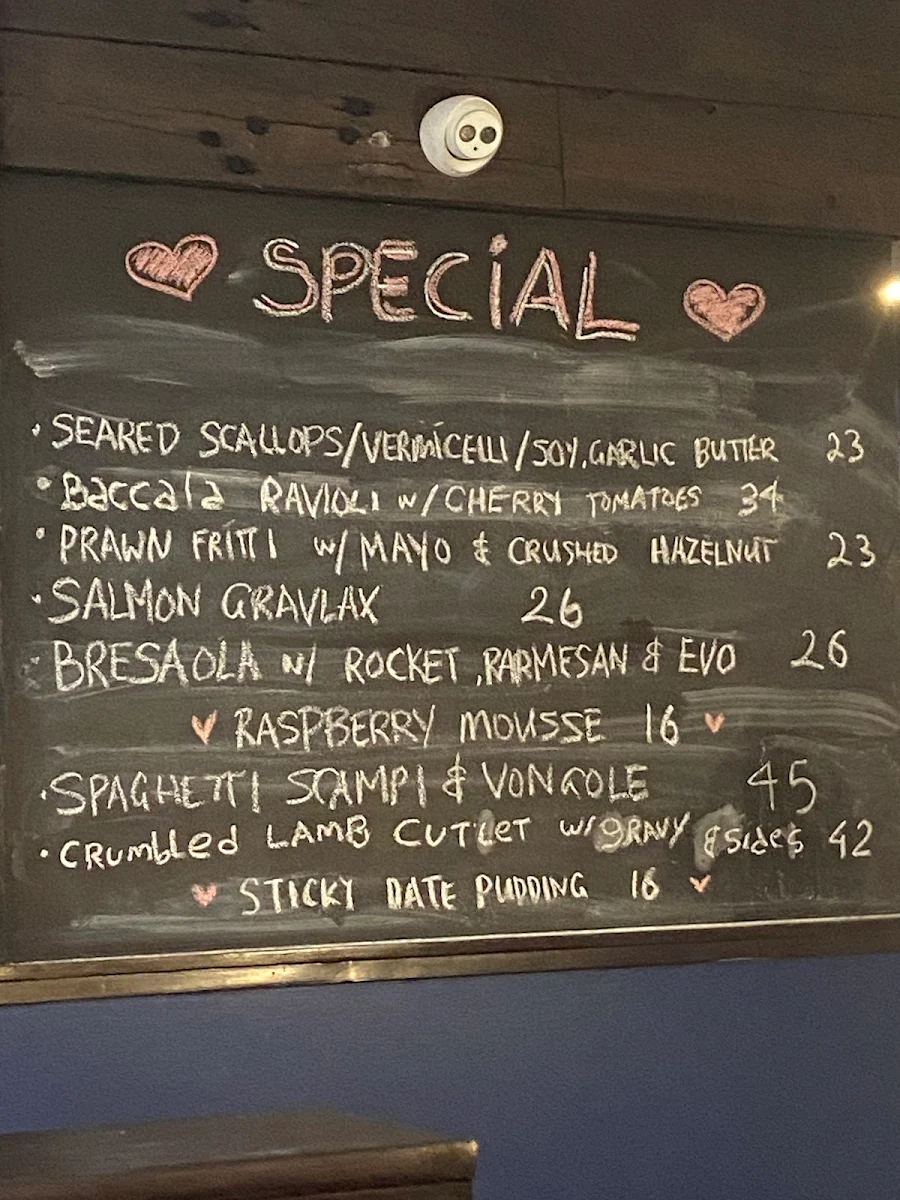 SPECIAL
· SEARED SCALLOPS/VERMICELLI/SOY, GARLIC BUTTER 23
· Baccala RAVIOLI w/ CHERRY TOMATOES 34
· PRAWN FRITTI w/ MAYO & CRUSHED HAZELNUT 23
· SALMON GRAVLAX 26
· BRESAOLA w/ ROCKET, PARMESAN & EVO 26
RASPBERRY MOUSSE 16
· SPAGHETTI SCAMPI & VONGOLE 45
· CRumbLed LAMB CUTLET w/ gRAVY & Sides 42
STICKY DATE PUDDING 16